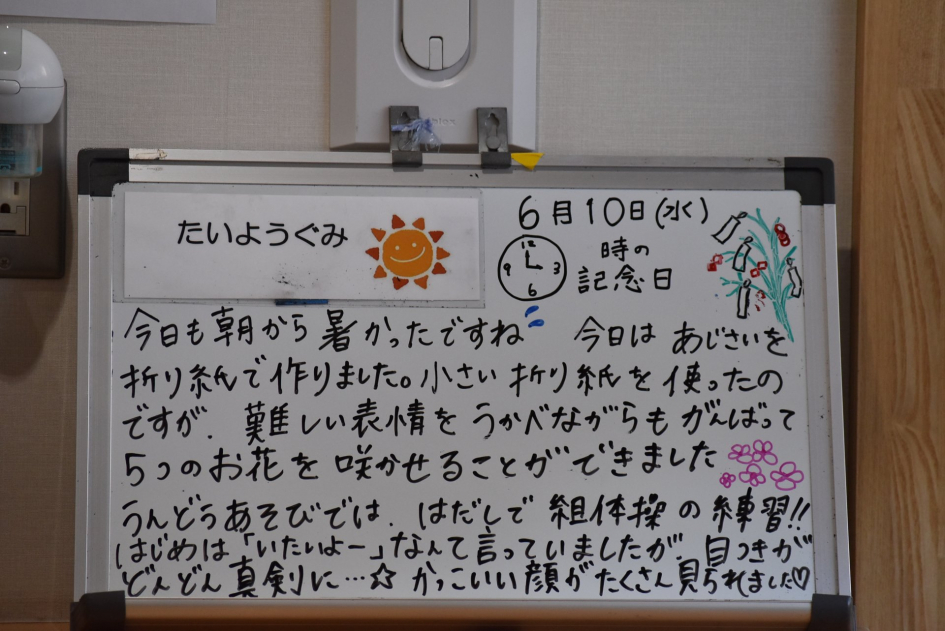 たいようぐみ
6月10日(水)
12
9 3
6
時の
記念日
今日も朝から暑かったですね 今日は あじさいを
折り紙で作りました。小さい 折り紙を 使ったの
ですが、難しい表情を うかべながらも がんばって
5つのお花を 咲かせることが できました
うんどうあそびでは、はだしで 組体操の練習!!
はじめは「いたいよー」なんて言っていましたが、目つきが
どんどん真剣に…☆ かっこいい顔がたくさん見られました♡